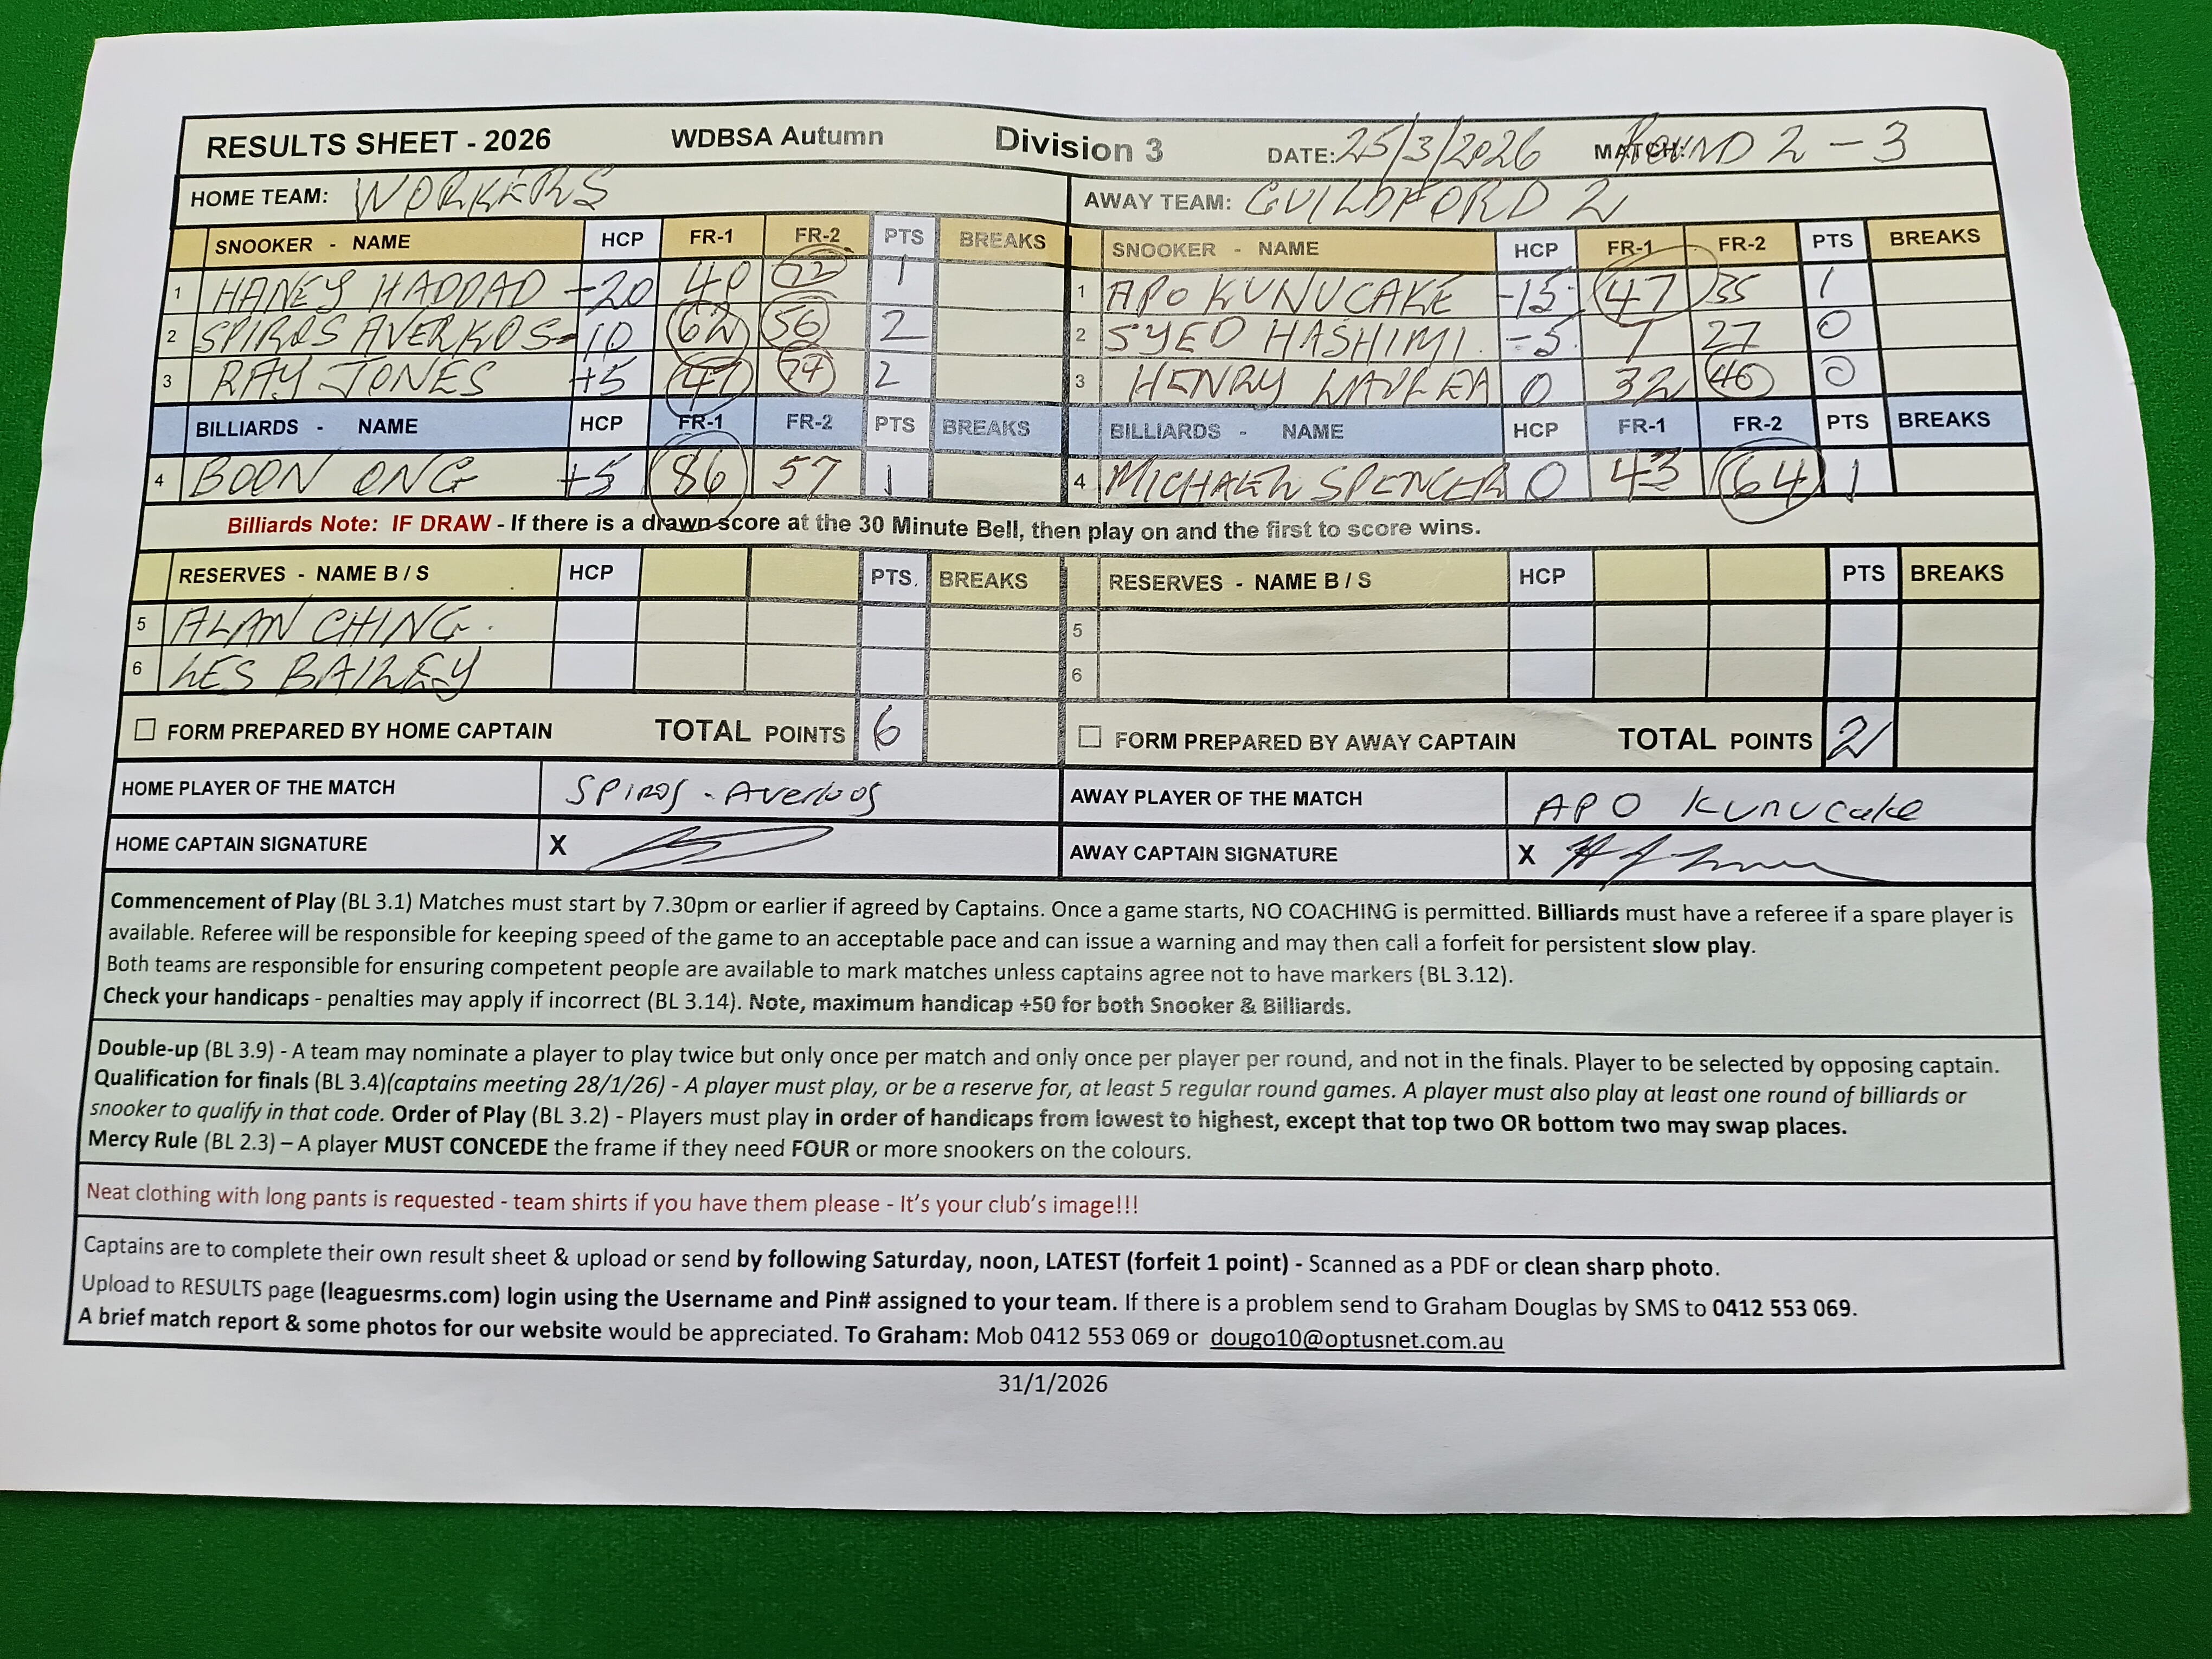 RESULTS SHEET - 2026 WDBSA Autumn Division 3 DATE: 25/3/2026 MATCH: ROUND 2 - 3
HOME TEAM: WORKERS AWAY TEAM: GUILDFORD 2
SNOOKER - NAME HCP FR-1 FR-2 PTS BREAKS SNOOKER - NAME HCP FR-1 FR-2 PTS BREAKS
1 HANEY HADDAD -20 40 72 1 1 APO KUNUCAKE -15 47 35 1
2 SPIROS AVERKOS -10 62 56 2 2 SYED HASHIMI -5 7 27 0
3 RAY JONES +5 47 74 2 3 HENRY 0 32 46 0
BILLIARDS - NAME HCP FR-1 FR-2 PTS BREAKS BILLIARDS - NAME HCP FR-1 FR-2 PTS BREAKS
4 BOON ONG +5 86 57 1 4 MICHAEL SPENCER 0 43 64 1
Billiards Note: IF DRAW - If there is a drawn score at the 30 Minute Bell, then play on and the first to score wins.
RESERVES - NAME B / S HCP PTS. BREAKS RESERVES - NAME B / S HCP PTS BREAKS
5 ALAN CHING. 5
6 LES BAILEY 6
☐ FORM PREPARED BY HOME CAPTAIN TOTAL POINTS 6 ☐ FORM PREPARED BY AWAY CAPTAIN TOTAL POINTS 2
HOME PLAYER OF THE MATCH SPIROS - Averkos AWAY PLAYER OF THE MATCH APO KUNUCAKE
HOME CAPTAIN SIGNATURE X AWAY CAPTAIN SIGNATURE X
Commencement of Play (BL 3.1) Matches must start by 7.30pm or earlier if agreed by Captains. Once a game starts, NO COACHING is permitted. Billiards must have a referee if a spare player is
available. Referee will be responsible for keeping speed of the game to an acceptable pace and can issue a warning and may then call a forfeit for persistent slow play.
Both teams are responsible for ensuring competent people are available to mark matches unless captains agree not to have markers (BL 3.12).
Check your handicaps - penalties may apply if incorrect (BL 3.14). Note, maximum handicap +50 for both Snooker & Billiards.
Double-up (BL 3.9) - A team may nominate a player to play twice but only once per match and only once per player per round, and not in the finals. Player to be selected by opposing captain.
Qualification for finals (BL 3.4)(captains meeting 28/1/26) - A player must play, or be a reserve for, at least 5 regular round games. A player must also play at least one round of billiards or
snooker to qualify in that code. Order of Play (BL 3.2) - Players must play in order of handicaps from lowest to highest, except that top two OR bottom two may swap places.
Mercy Rule (BL 2.3) – A player MUST CONCEDE the frame if they need FOUR or more snookers on the colours.
Neat clothing with long pants is requested - team shirts if you have them please - It's your club's image!!!
Captains are to complete their own result sheet & upload or send by following Saturday, noon, LATEST (forfeit 1 point) - Scanned as a PDF or clean sharp photo.
Upload to RESULTS page (leaguesrms.com) login using the Username and Pin# assigned to your team. If there is a problem send to Graham Douglas by SMS to 0412 553 069.
A brief match report & some photos for our website would be appreciated. To Graham: Mob 0412 553 069 or dougo10@optusnet.com.au
31/1/2026